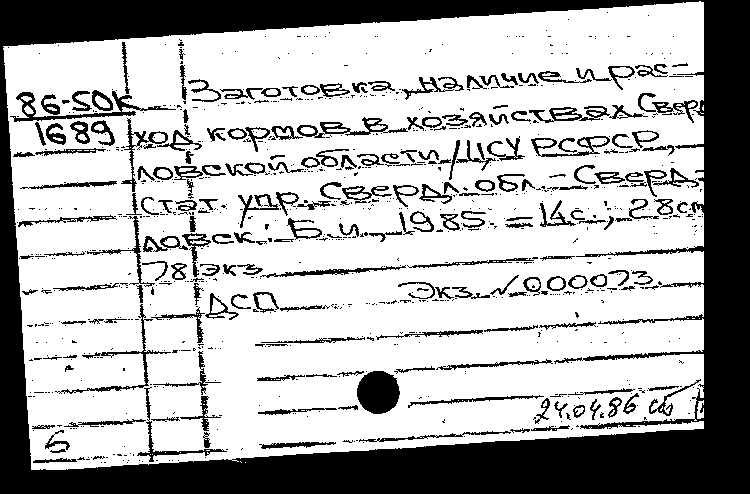 86-50К
1689
Заготовка, наличие и рас-
ход кормов в хозяйствах Сверд
ловской области /ЦСУ РСФСР,
Стат. упр. Свердл. обл. - Сверд-
ловск: Б.и., 1985. - 14с.; 28см
78 экз
ДСП Экз. №000073.
24.04.86
6